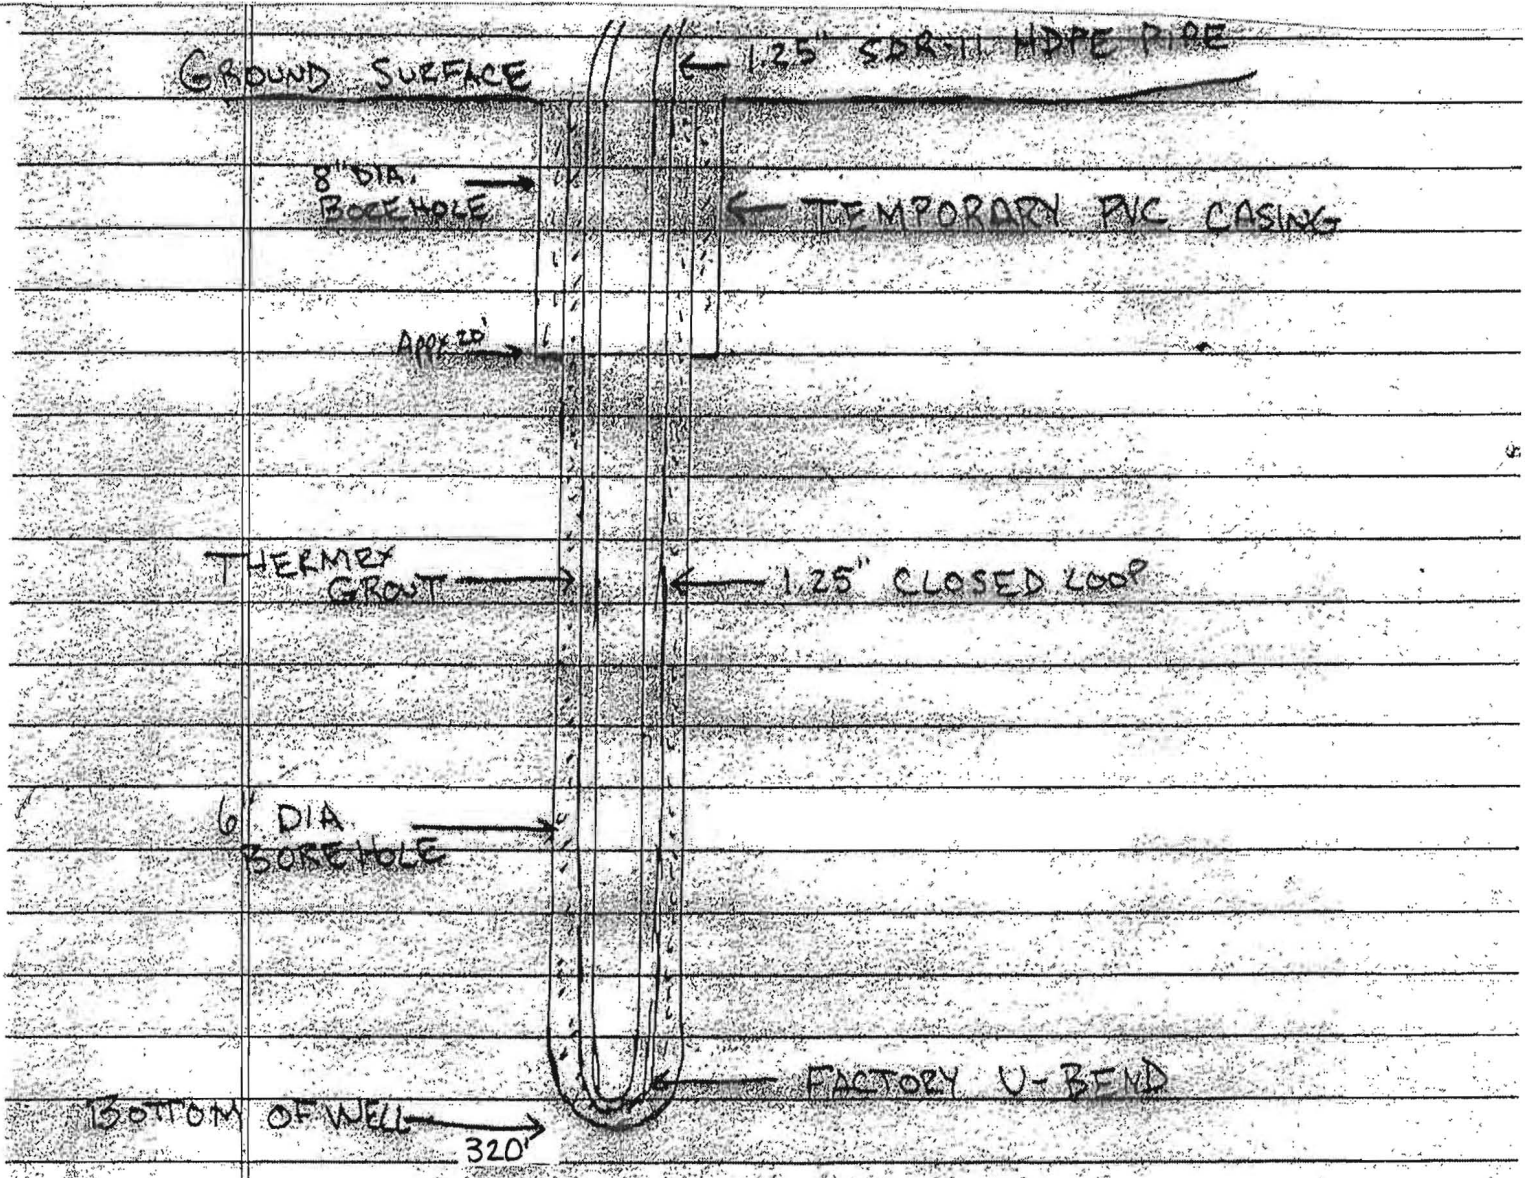 1.25" SDR-11 HDPE PIPE
GROUND SURFACE
8" DIA.
BOREHOLE
TEMPORARY PVC CASING
Appx 20'
THERMEX
GROUT
1.25" CLOSED LOOP
6" DIA.
BOREHOLE
FACTORY U-BEND
BOTTOM OF WELL
320'